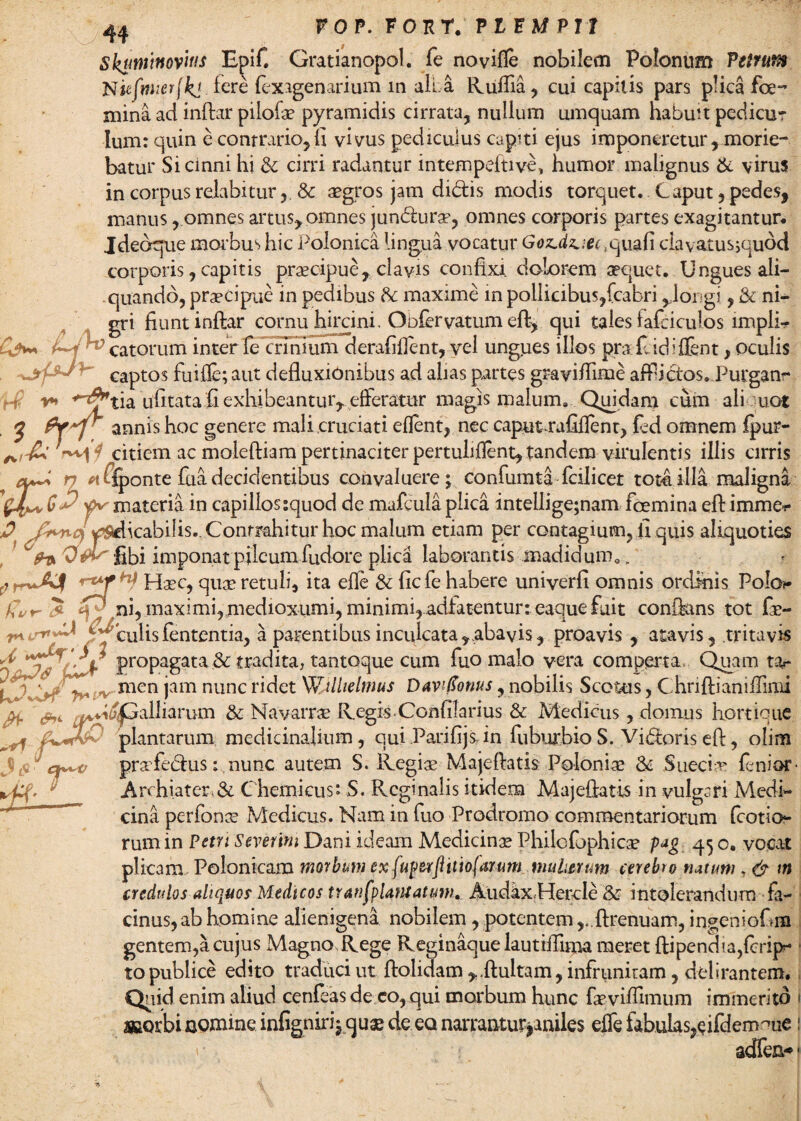 44 POP. FORT. PLEMPII
Skuminovius Epiſ. Gratianopol. ſe noviſſe nobilem Polonum Petrum
Nieſmierſkj ferè ſexagenarium in alba Ruſſia, cui capitis pars plica foe-
mina ad inſtar piloſæ pyramidis cirrata, nullum umquam habuit pedicu-
lum: quin è contrario, ſi vivus pediculus capiti ejus imponeretur, morie-
batur Si cinni hi & cirri radantur intempeſtivè, humor malignus & virus
in corpus relabitur, & ægros jam dictis modis torquet. Caput, pedes,
manus, omnes artus, omnes juncturæ, omnes corporis partes exagitantur.
Ideòque morbus hic Polonicâ linguâ vocatur Gozdziec, quaſi clavatus;quòd
corporis, capitis præcipuè, clavis confixi dolorem æquet. Ungues ali-
quandò, præcipuè in pedibus & maximè in pollicibus, ſcabri, longi, & ni-
gri fiunt inſtar cornu hircini. Obſervatum eſt, qui tales faſciculos impli-
catorum inter ſe crinium deraſiſſent, vel ungues illos præſcidiſſent, oculis
captos fuiſſe; aut defluxionibus ad alias partes graviſſimè afflictos. Purgan-
tia uſitata ſi exhibeantur, efferatur magis malum. Quidam cùm aliquot
annis hoc genere mali cruciati eſſent, nec caput raſiſſent, ſed omnem ſpur-
citiem ac moleſtiam pertinaciter pertuliſſent, tandem virulentis illis cirris
ſponte ſuâ decidentibus convaluere; conſumtâ ſcilicet totâ illâ malignâ
materiâ in capillos:quod de maſculâ plicâ intellige;nam foemina eſt imme-
dicabilis. Contrahitur hoc malum etiam per contagium, ſi quis aliquoties
ſibi imponat pileum ſudore plicâ laborantis madidum.
Hæc, quæ retuli, ita eſſe & ſic ſe habere univerſi omnis ordinis Polo-
ni, maximi, medioxumi, minimi, adfatentur: eaque fuit conſtans tot ſæ-
culis ſententia, à parentibus inculcata, abavis, proavis, atavis, tritavis
propagata & tradita, tantoque cum ſuo malo vera comperta. Quam ta-
men jam nunc ridet Willielmus Daviſſonus, nobilis Scotus, Chriſtianiſſimi
Galliarum & Navarræ Regis Conſiliarius & Medicus, domus hortique
plantarum medicinalium, qui Pariſijs in ſuburbio S. Victoris eſt, olim
præfectus: nunc autem S. Regiæ Majeſtatis Poloniæ & Sueciæ ſenior
Archiater & Chemicus: S. Reginalis itidem Majeſtatis in vulgari Medi-
cinâ perſonæ Medicus. Nam in ſuo Prodromo commentariorum ſcotio-
rum in Petri Severini Dani ideam Medicinæ Philoſophicæ pag. 450. vocat
plicam Polonicam morbum ex ſuperſtitioſarum mulierum cerebro natum, & in
credulos aliquos Medicos tranſplantatum. Audax Hercle & intolerandum fa-
cinus, ab homine alienigenâ nobilem, potentem, ſtrenuam, ingenioſam
gentem, à cujus Magno Rege Reginâque lautiſſima meret ſtipendia, ſcrip-
to publicè edito traduci ut ſtolidam, ſtultam, infrunitam, delirantem.
Quid enim aliud cenſeas de eo, qui morbum hunc ſæviſſimum immeritò
morbi nomine inſigniri; quæ de eo narrantur, aniles eſſe fabulas, eiſdemque
adſen-